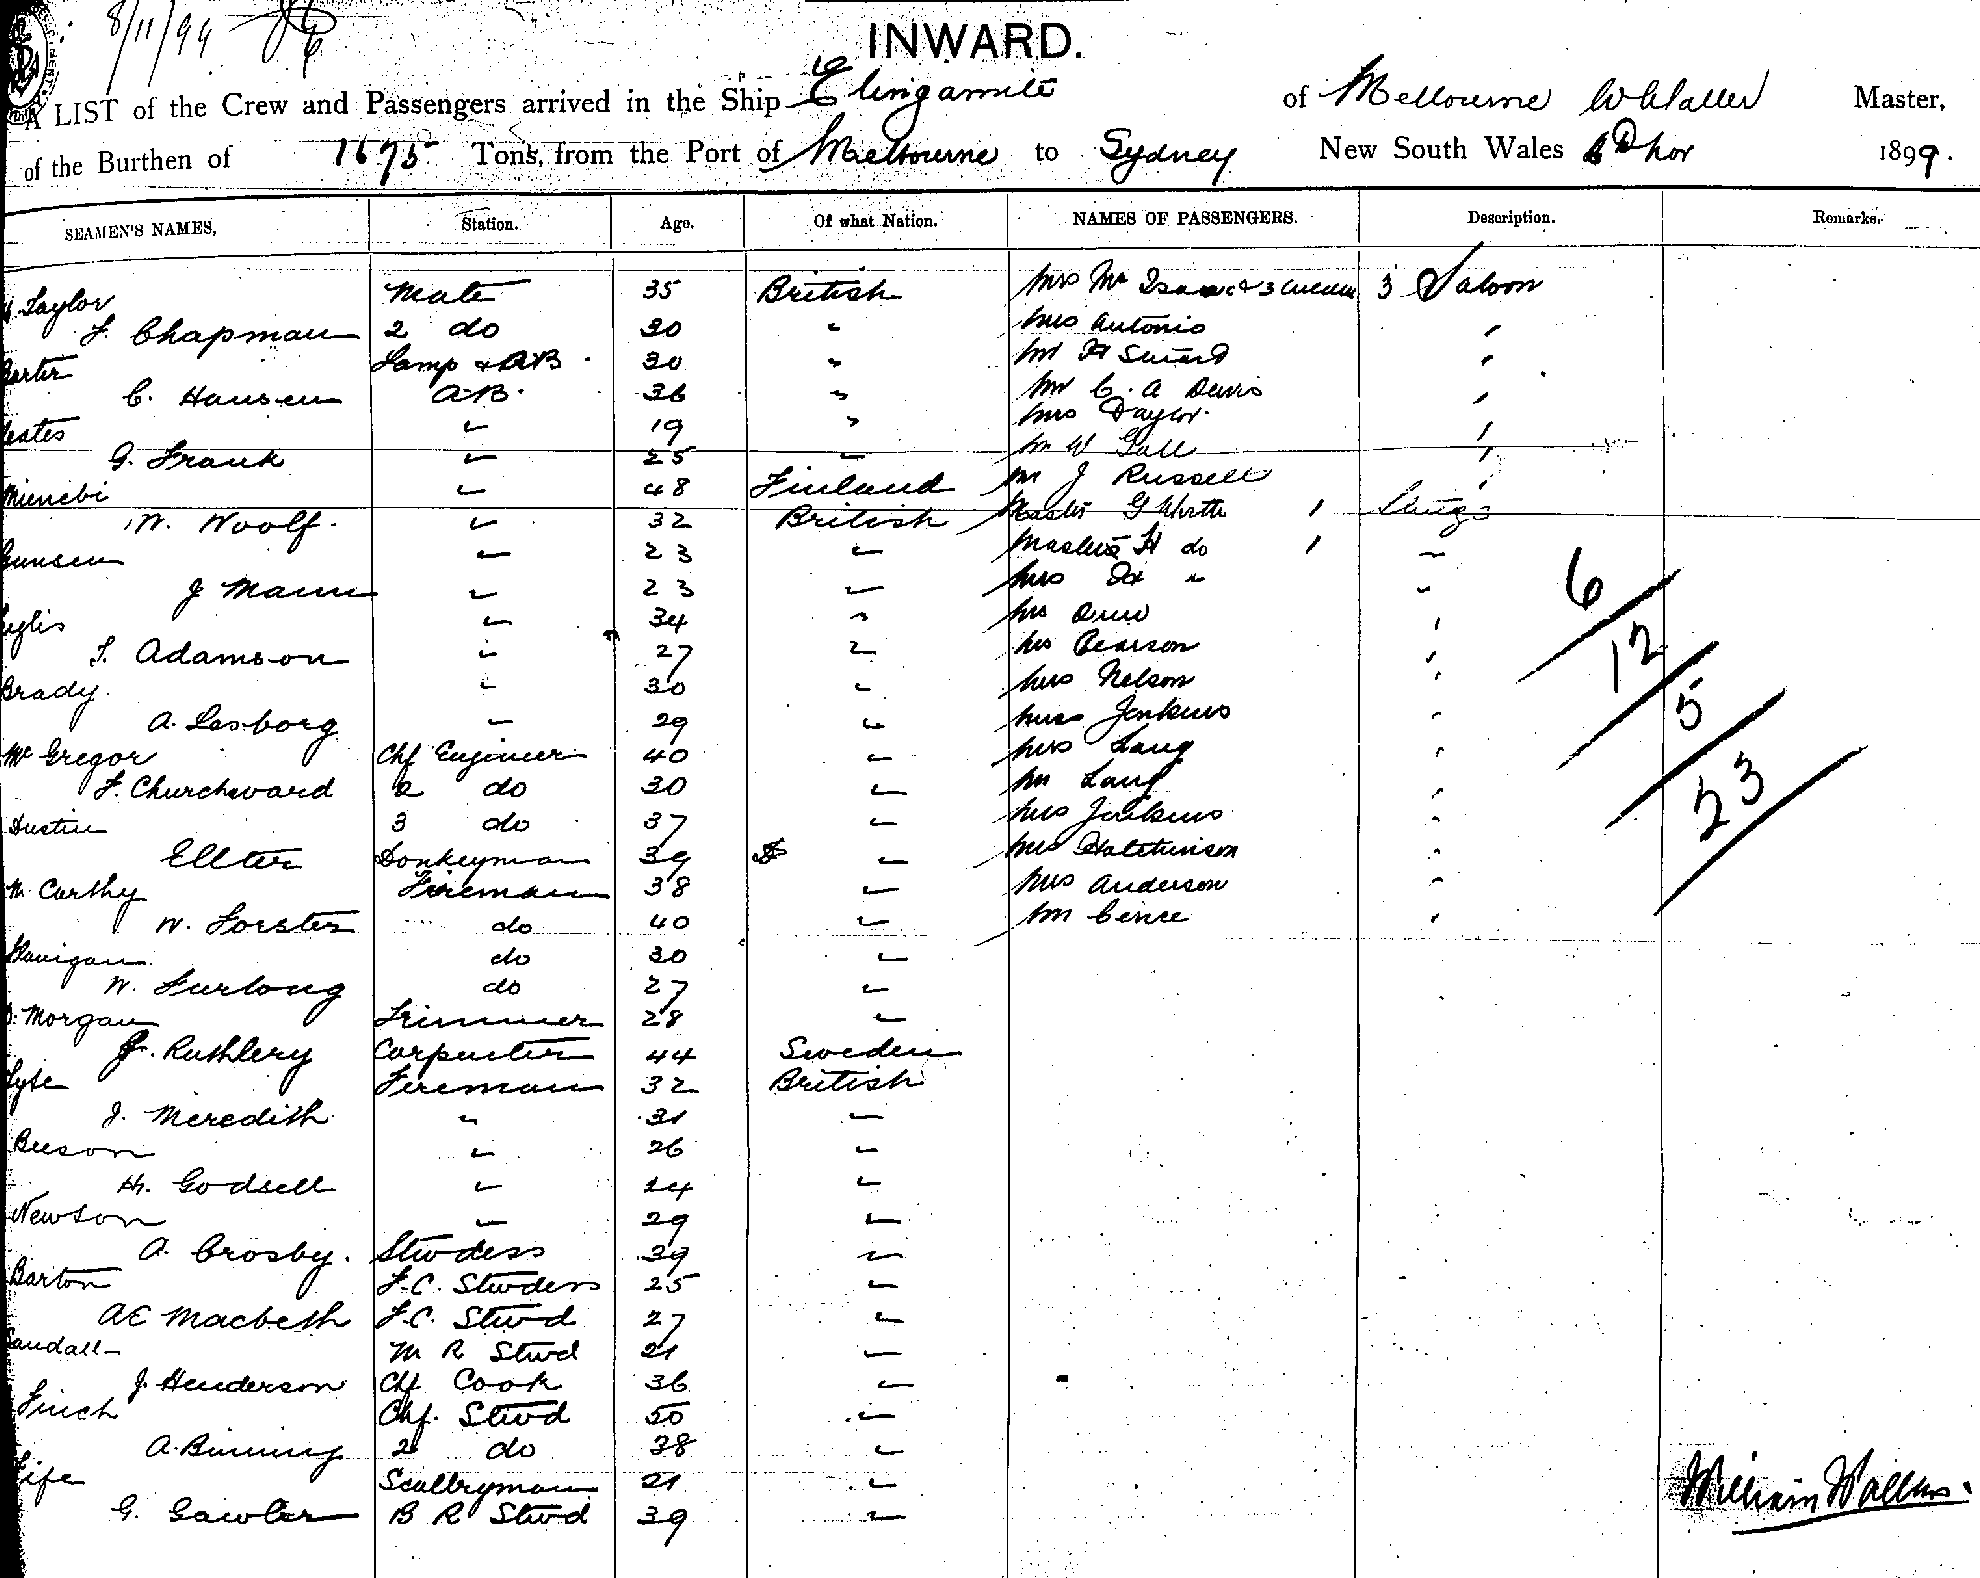 8/11/99
INWARD.
A LIST of the Crew and Passengers arrived in the Ship Elingamite of Melbourne Master,
of the Burthen of 1675 Tons, from the Port of Melbourne to Sydney New South Wales Nov 1899.
SEAMEN'S NAMES, Station. Age. Of what Nation. NAMES OF PASSENGERS. Description. Remarks.
Taylor Mate 35 British Mrs 3 3 Saloon
F. Chapman 2 do 30 " Mrs Antonio "
Lamp & AB 30 " Mr "
C. Hansen AB. 36 " Mr C. A Davis "
" 19 " Mrs Taylor "
G. Frank " 25 " Mr W Gall "
" 48 Finland Mr J Russell "
W. Woolf " 32 British Master G 1
" 23 " Master H do 1 "
J Mann " 23 " Mrs "
" 34 " "
S. Adamson " 27 " Pearson "
Brady " 30 " Nelson "
A. Lesborg " 29 " Jenkins "
McGregor Chf Engineer 40 " Mrs Lang "
F. Churchward 2 do 30 " Mr Lang "
3 do 37 " Mrs Jenkins "
Donkeyman 39 " Hutchinson "
McCarthy Fireman 38 " Mrs Anderson "
W. Forster do 40 " "
do 30 "
W. Furlong do 27 "
Morgan Trimmer 28 "
Carpenter 44 Sweden
Fireman 32 British
J. Meredith " 31 "
Beeson " 26 "
H. Godsell " 24 "
Newson " 29 "
A. Crosby. Stwdess 39 "
Barton F.C. Stwdess 25 "
AE Macbeth F.C. Stwd 27 "
M R Stwd 21 "
J. Henderson Chf Cook 36 "
Finch Chf. Stwd 50 "
A. Binning 2 do 38 "
Fife Scullryman 21 "
G. Gawler B R Stwd 39 "
6
12
5
23
William Waller.